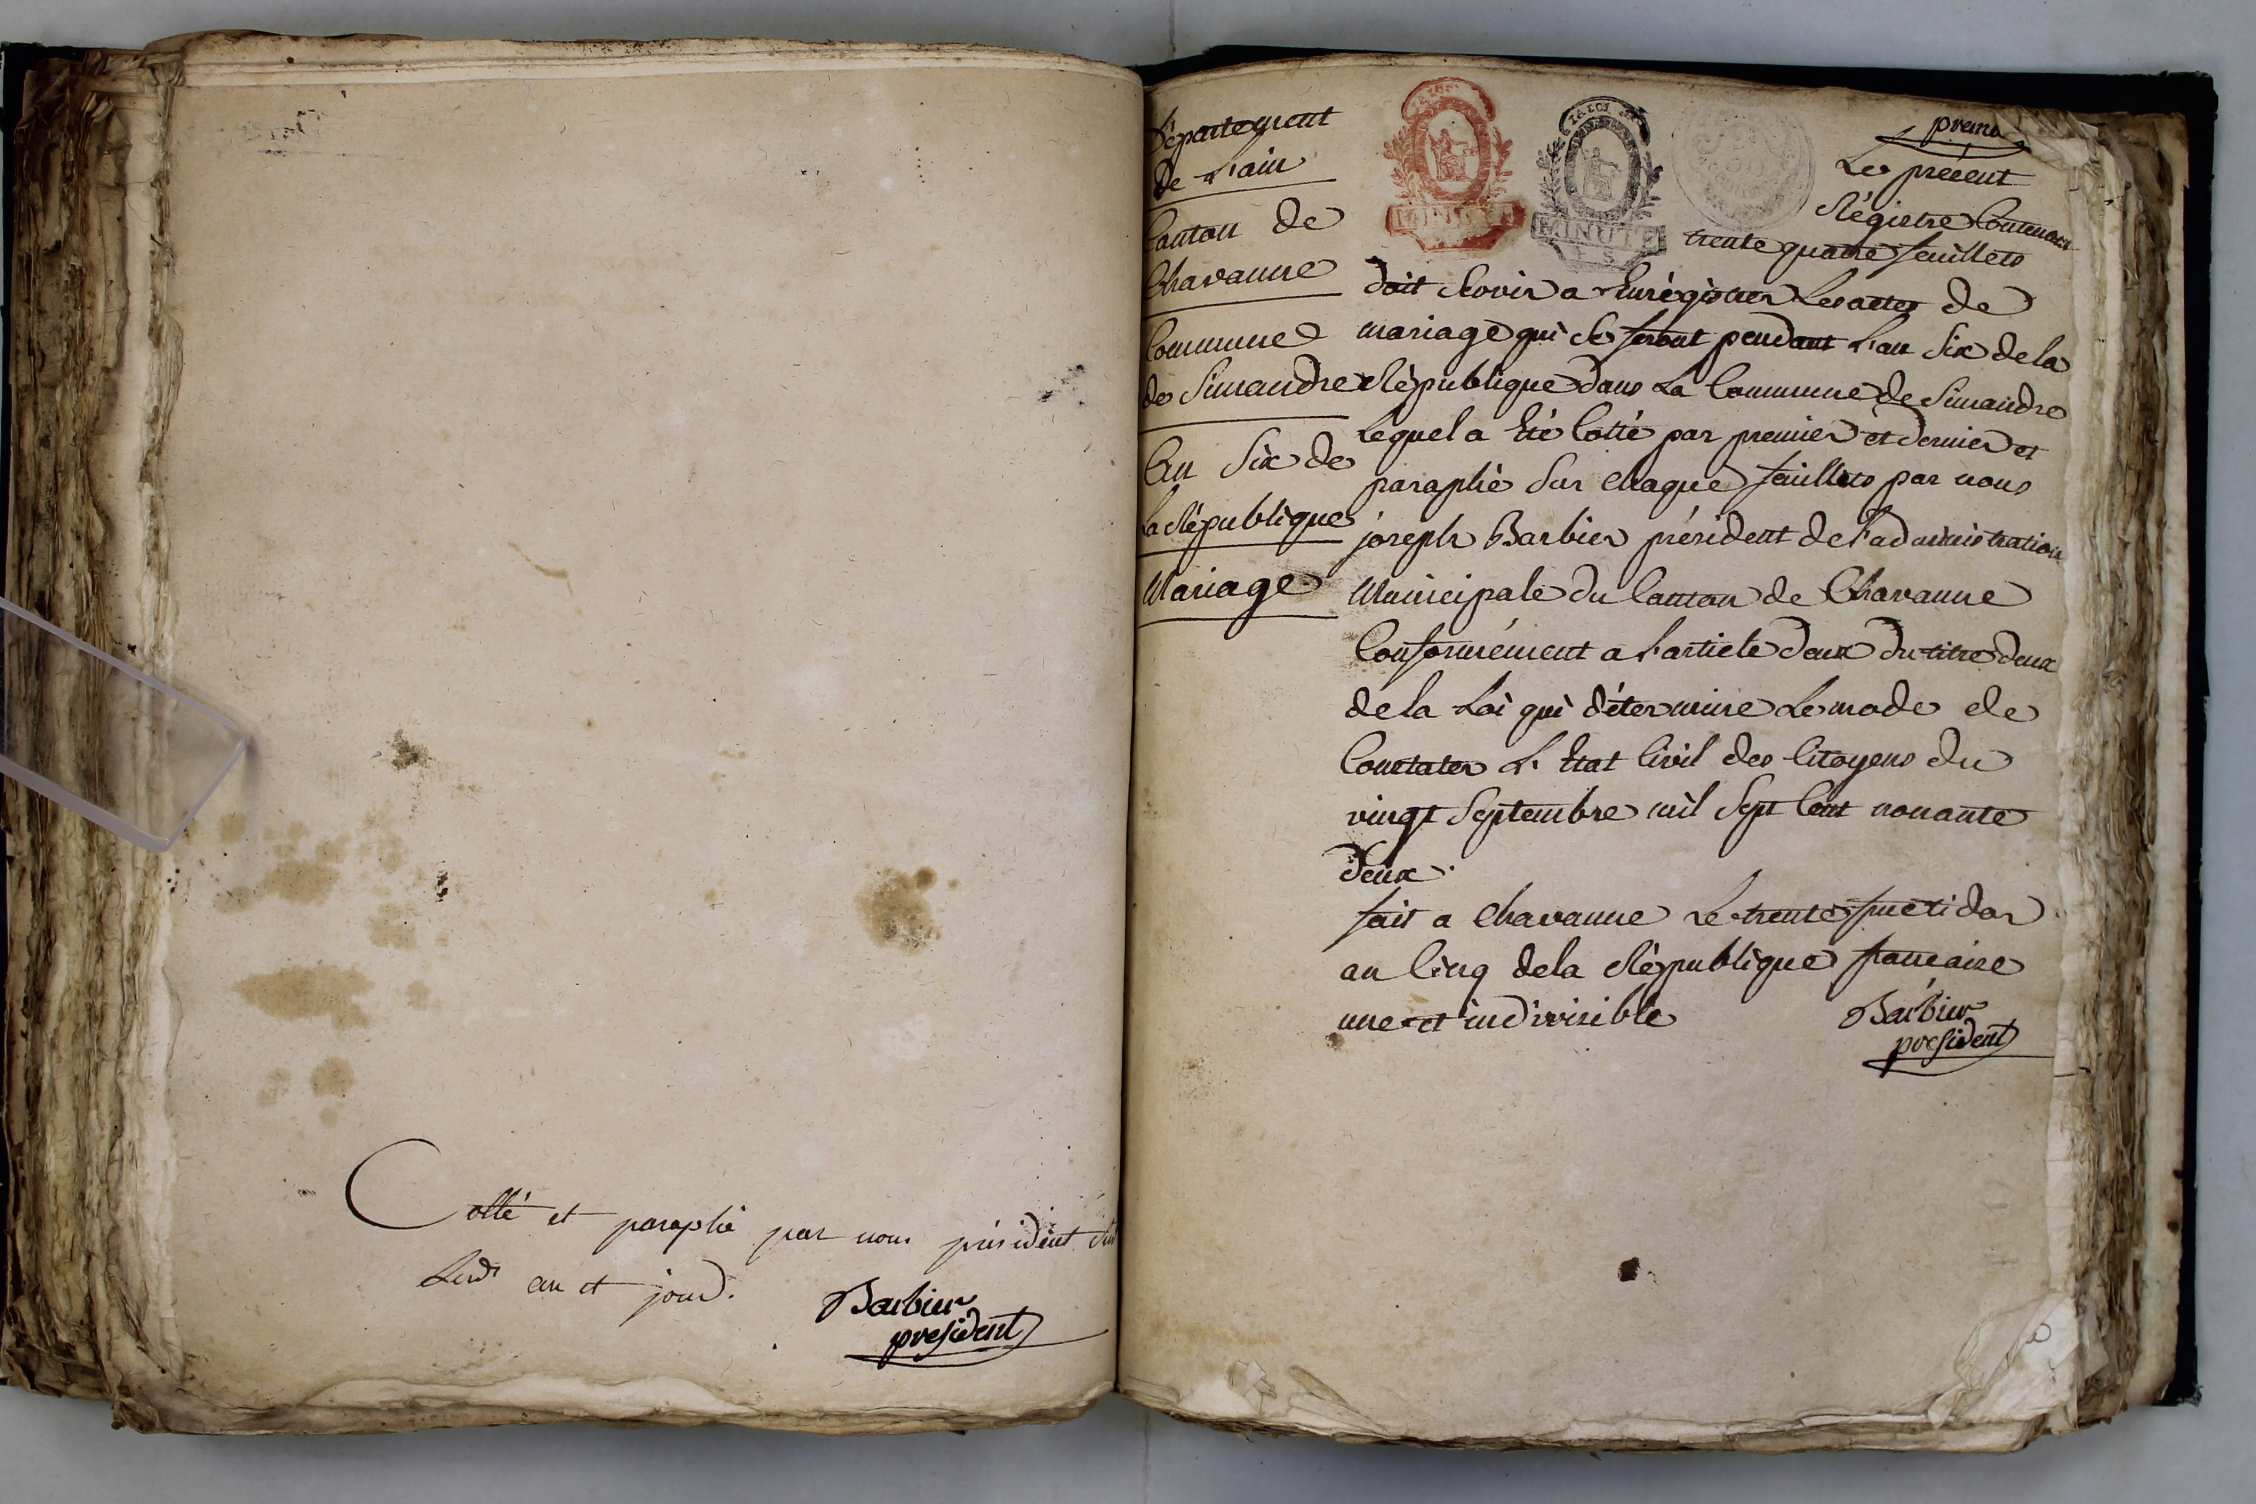 Cotté et paraphé par nous président
an et jour.
Barbier
president
Département
de L'ain
Canton de
Chavanne
Commune
de Simandre
An Six de
La République
Mariage
LA LOI
MINUTE
premier
Le présent
Régistre Contenant
trente quatre feuillets
doit servir a Enrégistrer Les actes de
mariage qui se feront pendant L'an Six de la
République dans La Commune de Simandre
Lequel a Eté Cotté par premier et dernier et
paraphé Sur chaque feuillets par nous
joseph Barbier président de l'administration
Municipale du Canton de Chavanne
Conformément a l'article deux du titre deux
de la Loi qui détermine Le mode de
Constater L'Etat Civil des Citoyens du
vingt Septembre mil Sept Cent nonante
deux.
fait a Chavanne Le trente fructidor
an Cinq de la République francaise
une et indivisible
Barbier
president